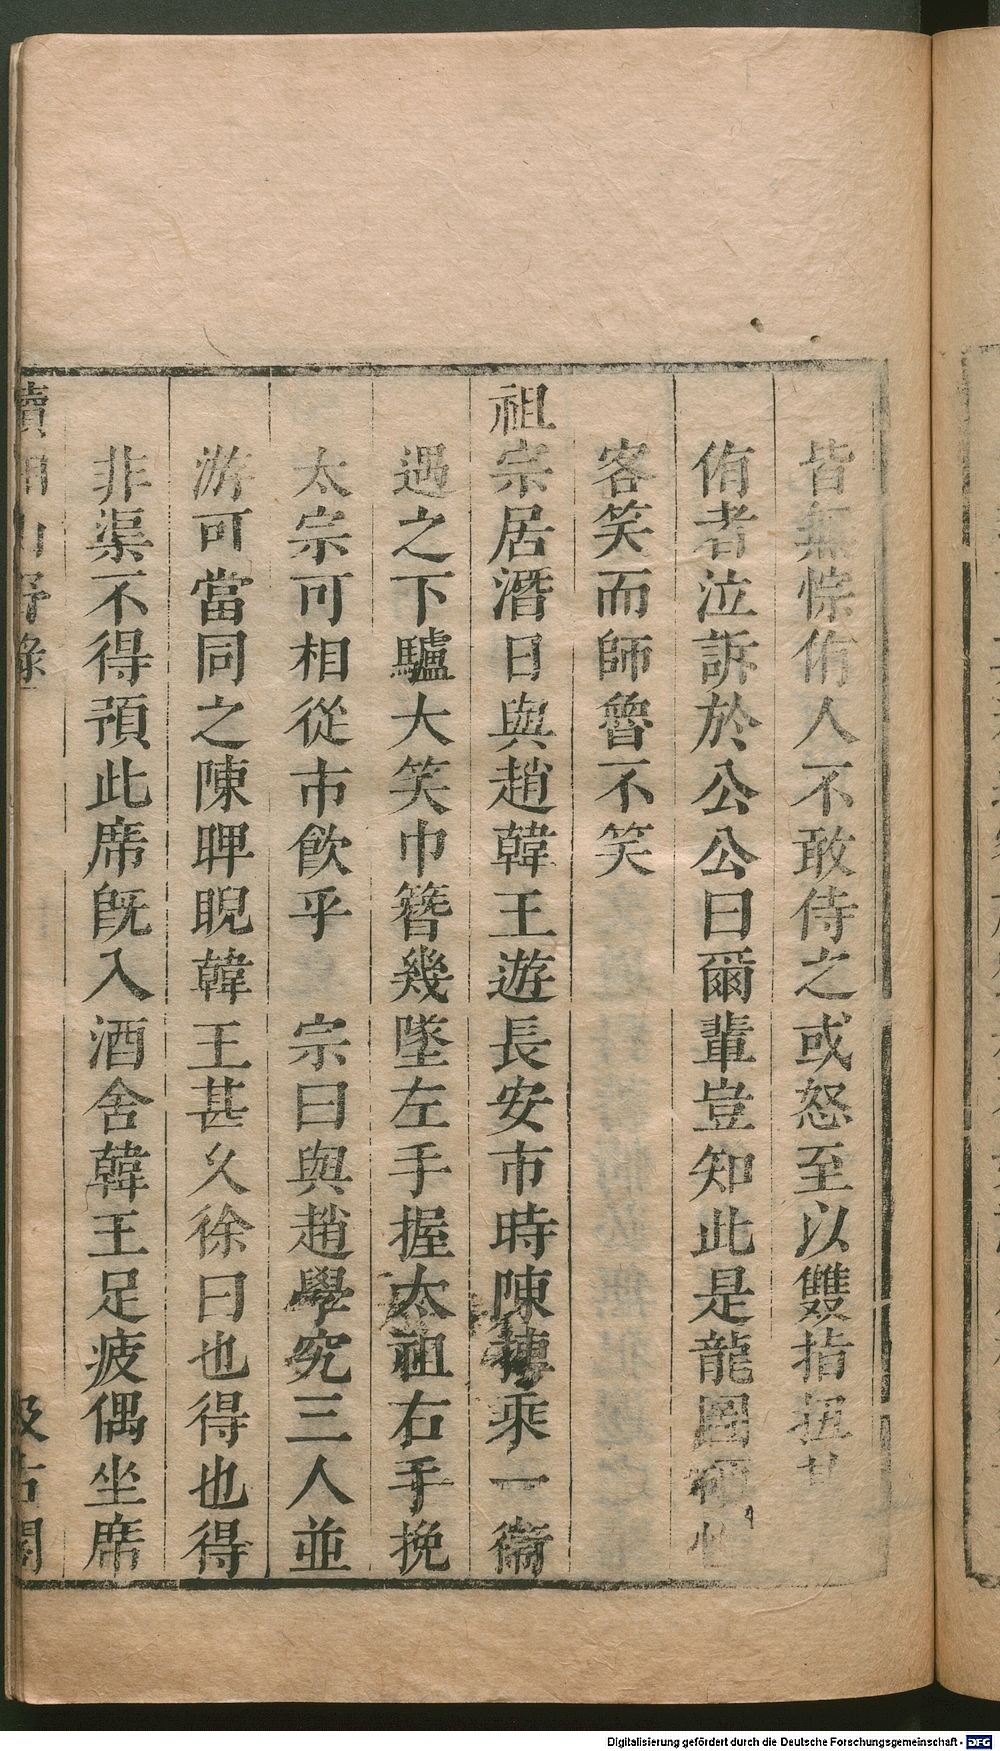 皆無悰侑人不敢侍之或怒至以雙指扭
侑者泣訴於公公曰爾輩豈知此是龍圖
客笑而師魯不笑
祖宗居潛日與趙韓王遊長安市時陳摶乘一衞
遇之下驢大笑巾簪幾墜左手握太祖右手挽
太宗可相從市飲乎 宗曰與趙學究三人並
游可當同之陳睥睨韓王甚久徐曰也得也得
非渠不得預此席旣入酒舍韓王足疲偶坐席
續湘山野錄
汲古閣
Digitalisierung gefördert durch die Deutsche Forschungsgemeinschaft - DFG